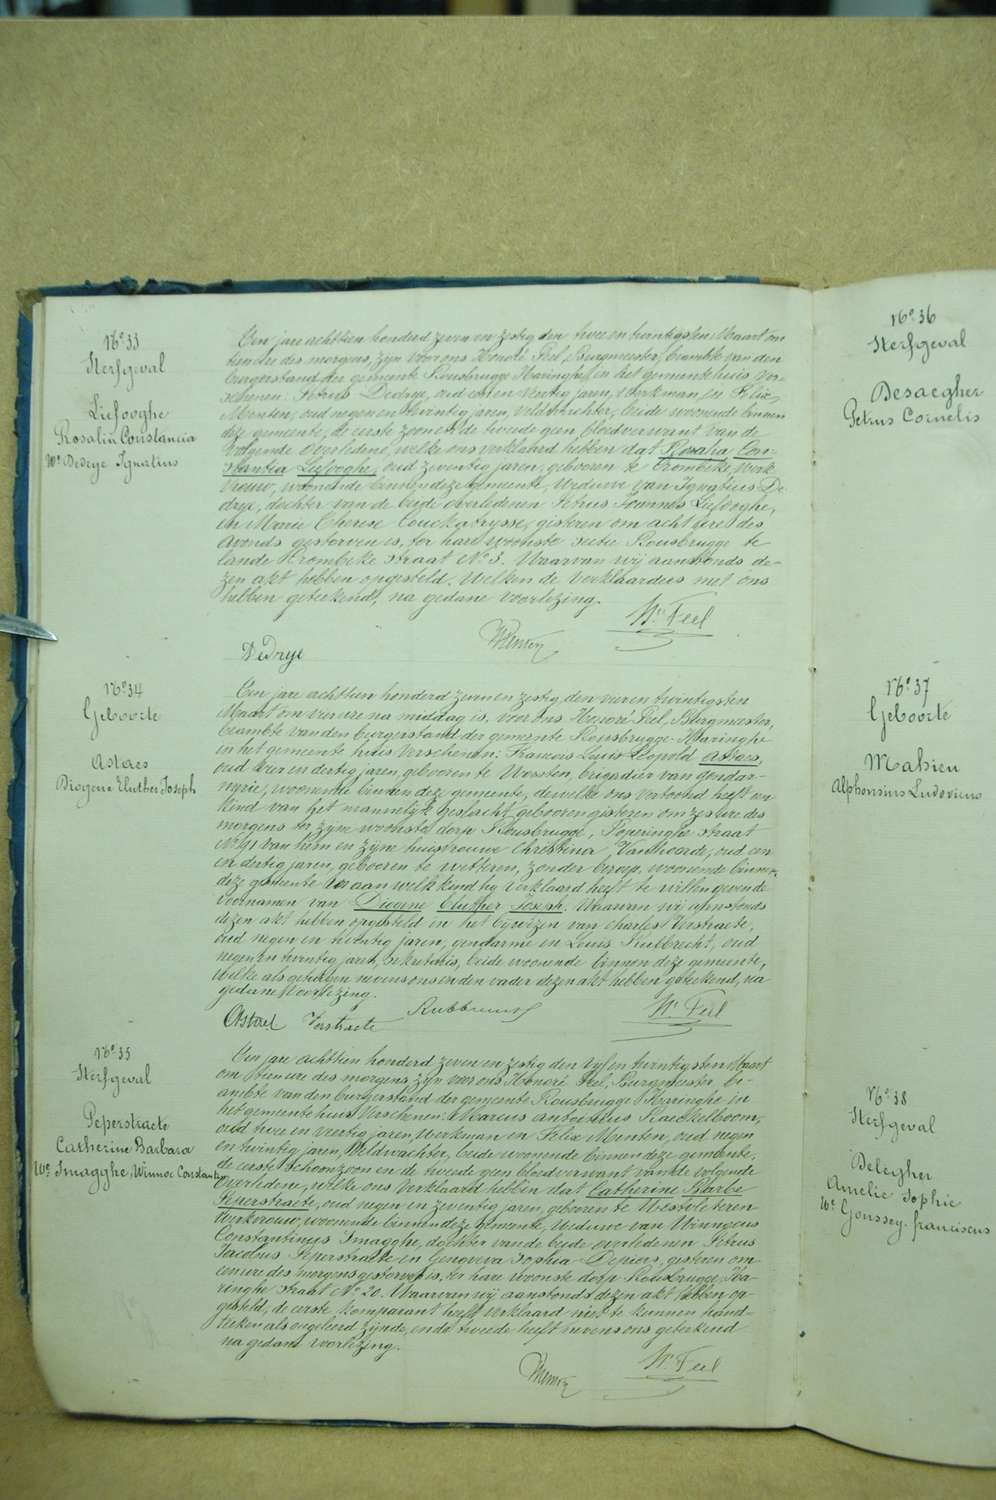 N° 33
Sterfgeval
Liefooghe
Rosalia Constancia
We Dedrye Ignatius
Een jare achttien honderd zeven en zestig den twee en twintigsten Maart om
tien ure des morgens, zyn voor ons Honoré Feel, Burgmeester, beambte van den
burgerstand der gemeente Rousbrugge Haringhe, in het gemeentehuis ver-
schenen: Petrus Dedrye, oud een en veertig jaren, Werkman, en Felix
Menten, oud negen en twintig jaren, Veldwachter, beide woonende binnen
deze gemeente, de eerste zoon en de tweede geen bloedverwant van de
volgende overledene, welke ons verklaard hebben dat Rosalia Con-
stantia Liefooghe, oud zeventig jaren, geboren te Crombeke, Werk-
vrouw, woonende binnen deze gemeente, Weduwe van Ignatius De-
drye, dochter van de beide overledenen Petrus Joannes Liefooghe,
en Marie Therese Couckatrysse, gisteren om acht ure des
avonds gestorven is, ter hare woonste sectie Rousbrugge te
lande Krombeke straat N° 3. Waarvan wij aanstonds de-
zen akt hebben opgesteld. Welken de verklaarders met ons
hebben geteekend, na gedane voorlezing.
DeDrye
Hre Feel
N° 34
Geboorte
Astaes
Diogene Eluther Joseph
Een jare achttien honderd zeven en zestig, den vier en twintigsten
Maart om vier ure na middag is, voor ons Honoré Feel, Burgmeester,
beambte van den burgerstand der gemeente Rousbrugge-Haringhe
in het gemeente huis verschenen: Francois Louis Leopold Astaes,
oud vier en dertig jaren, geboren te Vorsten, brigadier van gendar-
merie, woonende binnen deze gemeente, dewelke ons vertoond heeft een
kind van het mannelijk geslacht, geboren gisteren om zes ure des
morgens ter zijne woonste dorp Rousbrugge, Poperinghe straat
N° 41 van hem en zijne huisvrouwe Christina Vanhoorde, oud een
en dertig jaren, geboren te Wetteren, zonder beroep, woonende binnen
deze gemeente en aan welk kind hy verklaard heeft te willen gevende
voornamen van Diogene Eluther Joseph. Waarvan wij aanstonds
dezen akt hebben opgesteld in het bijwezen van Charles Verstraete,
oud negen en twintig jaren, gendarme en Louis Rubbrecht, oud
negen en twintig jaren, sekretaris, beide woonende binnen deze gemeente,
Welke als getuigen nevens ons en den vader dezen akt hebben geteekend, na
gedane voorlezing.
Astael Verstraete
Hre Feel
N° 35
Sterfgeval
Peperstraete
Catherine Barbara
We Imagghe, Winnoc Constantin
Een jare achttien honderd zeven en zestig den vyf en twintigsten Maart
om tien ure des morgens zyn voor ons Honoré Feel, Burgmeester, be-
ambte van den burgerstand der gemeente Rousbrugge-Haringhe in
het gemeente huis verschenen: Marcus Antonius Raeckelboom,
oud twee en veertig jaren, Werkman en Felix Menten, oud negen
en twintig jaren, Veldwachter, beide woonende binnen deze gemeente,
de eerste schoonzoon en de tweede geen bloedverwant van de volgende
overledene, welke ons verklaard hebben dat Catherine Barbe
Peperstraete, oud negen en zeventig jaren, geboren te Westvleteren
werkvrouw, woonende binnen deze gemeente, Weduwe van Winnocus
Constantinus Imagghe, dochter van de beide overledenen Petrus
Jacobus Peperstraete en Genoveva Sophia Depiers, gisteren om
een ure des morgens gestorven is, ter hare woonste dorp Rousbrugge, Ha-
ringhe straat N° 20. Waarvan wij aanstonds dezen akt hebben op-
gesteld, de eerste komparant heeft verklaard niet te kunnen hand-
teeken als ongeleerd zijnde, en de tweede heeft nevens ons geteekend
na gedane voorlezing.
Hre Feel
N° 36
Sterfgeval
Desaegher
Petrus Cornelis
N° 37
Geboorte
Mahieu
Alphonsius Ludovicus
N° 38
Sterfgeval
Delegher
Amelie Sophie
We Goussey, franciscus